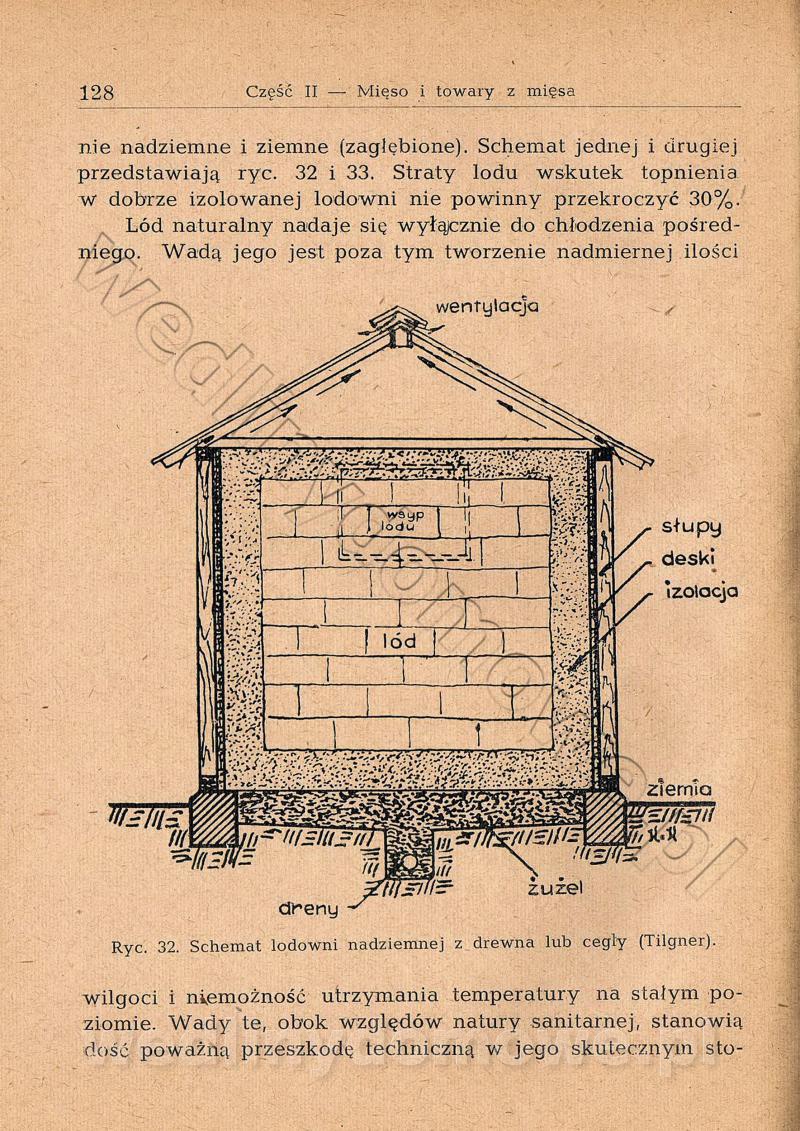 128
Część II — Mięso i towary z mięsa
nie nadziemne i ziemne (zagłębione). Schemat jednej i drugiej
przedstawiają ryc. 32 i 33. Straty lodu wskutek topnienia
w dobrze izolowanej lodowni nie powinny przekroczyć 30%.
Lód naturalny nadaje się wyłącznie do chłodzenia pośred-
niego. Wadą jego jest poza tym tworzenie nadmiernej ilości
wentylacja
wsyp
lodu
słupy
deski
izolacja
lód
ziemia
żużel
dreny
Ryc. 32. Schemat lodowni nadziemnej z drewna lub cegły (Tilgner).
wilgoci i niemożność utrzymania temperatury na stałym po-
ziomie. Wady te, obok względów natury sanitarnej, stanowią
dość poważną przeszkodę techniczną w jego skutecznym sto-